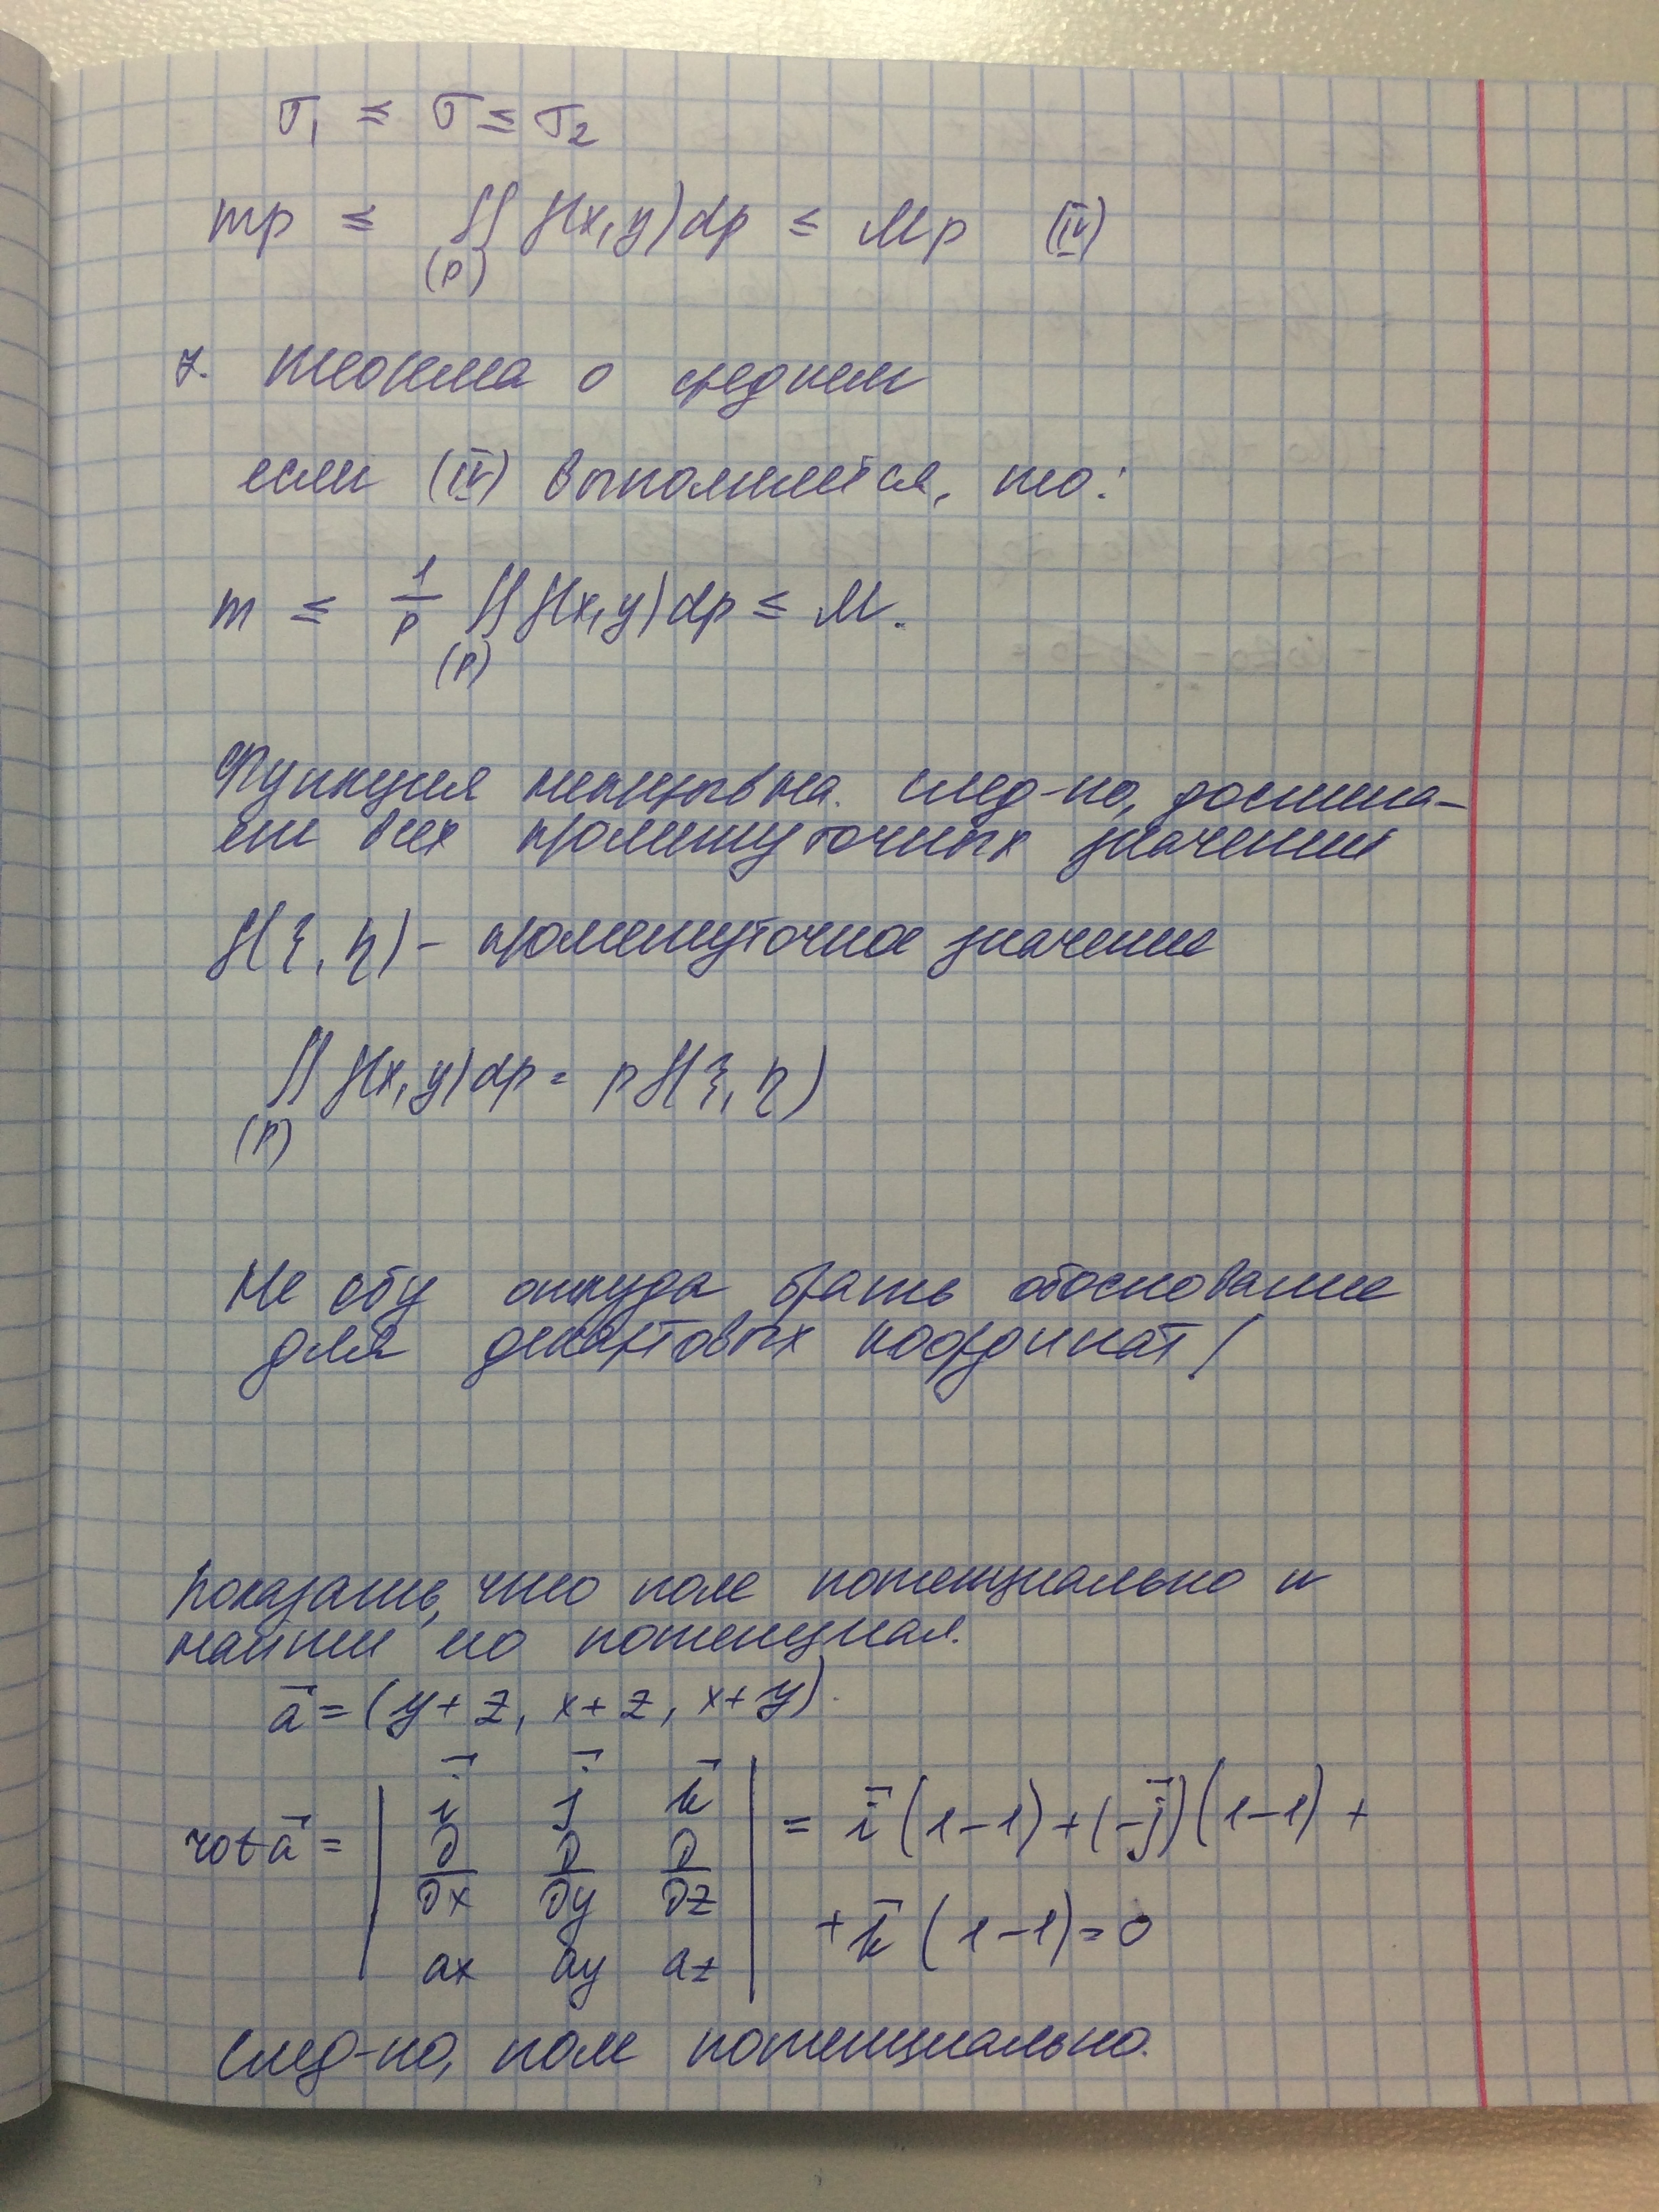 σ₁ ≤ σ ≤ σ₂
mp ≤ ∬ f(x,y)dp ≤ Mp (IV)
(P)
7. Теорема о среднем
если (IV) выполняется, то:
m ≤ 1/p ∬ f(x,y)dp ≤ M.
(P)
Функция непрерывна. След-но, достига-
ет всех промежуточных значений
f(ξ, η) - промежуточное значение
∬ f(x,y)dp = p f(ξ, η)
(P)
Не ебу откуда брать обоснование
для декартовых координат!
Показать, что поле потенциально и
найти его потенциал.
a⃗ = (y+z, x+z, x+y).
rot a⃗ = | i⃗ j⃗ k⃗ | = i⃗ (1-1) + (-j⃗)(1-1) +
∂/∂x ∂/∂y ∂/∂z
+ k⃗ (1-1) = 0
ax ay az
След-но, поле потенциально.